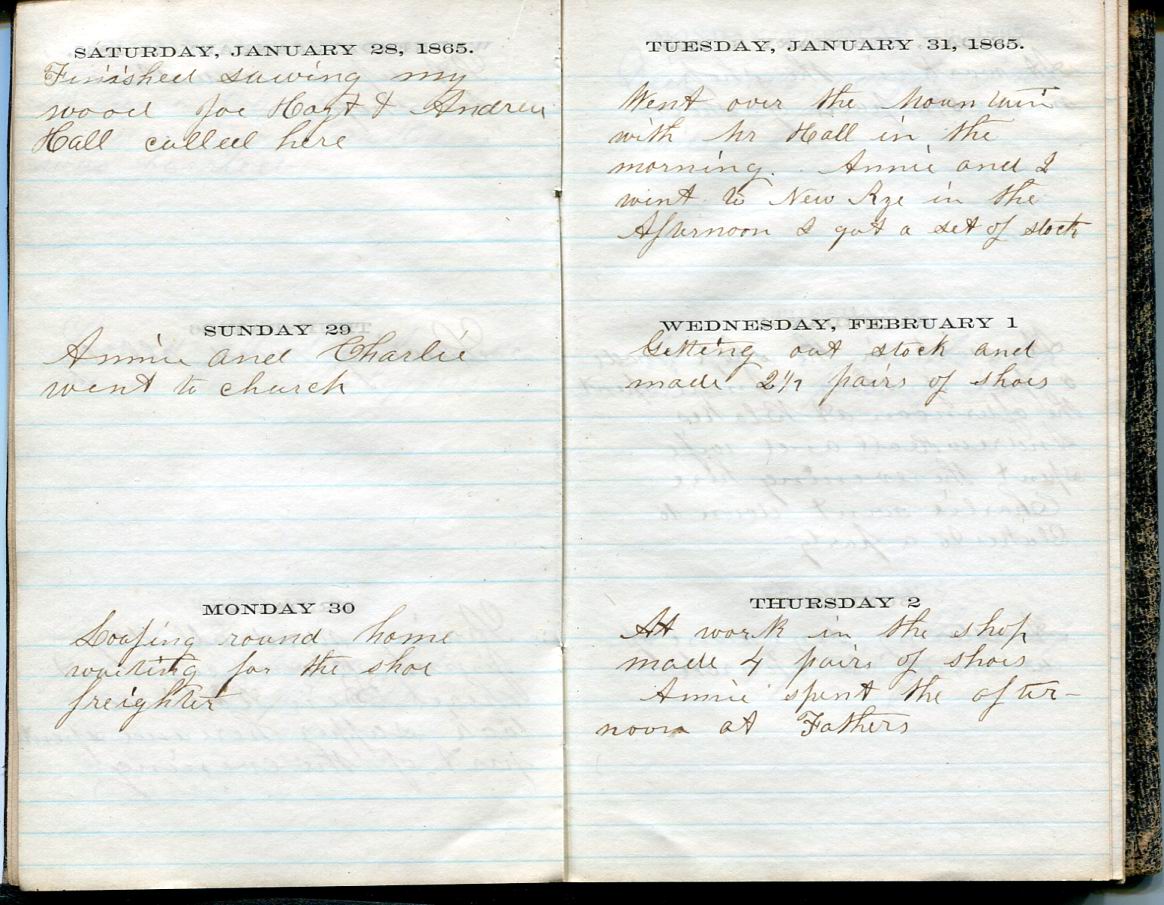 SATURDAY, JANUARY 28, 1865.
Finished sawing my
wood Joe Hoyt & Andrew
Hall called here
SUNDAY 29
Annie and Charlie
went to church
MONDAY 30
Loafing round home
waiting for the shoe
freighter
TUESDAY, JANUARY 31, 1865.
Went over the Mountain
with Mr Hall in the
morning. Annie and I
went to New Rye in the
Afternoon I got a set of stock
WEDNESDAY, FEBRUARY 1
Getting out stock and
made 2 1/2 pairs of shoes
THURSDAY 2
At work in the shop
made 4 pairs of shoes
Annie spent the after-
noon at Fathers